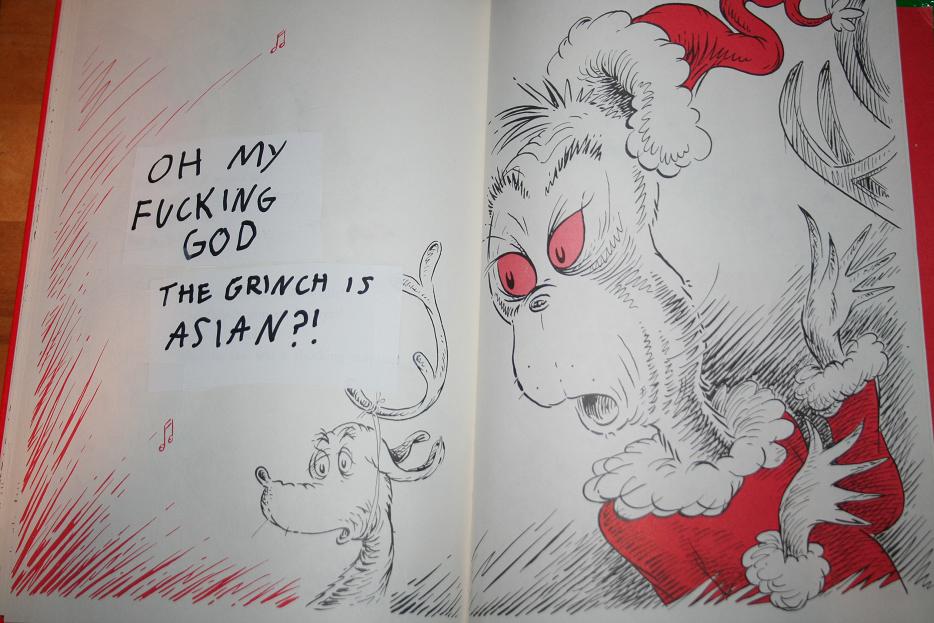 OH MY
FUCKING
GOD
THE GRINCH IS
ASIAN?!